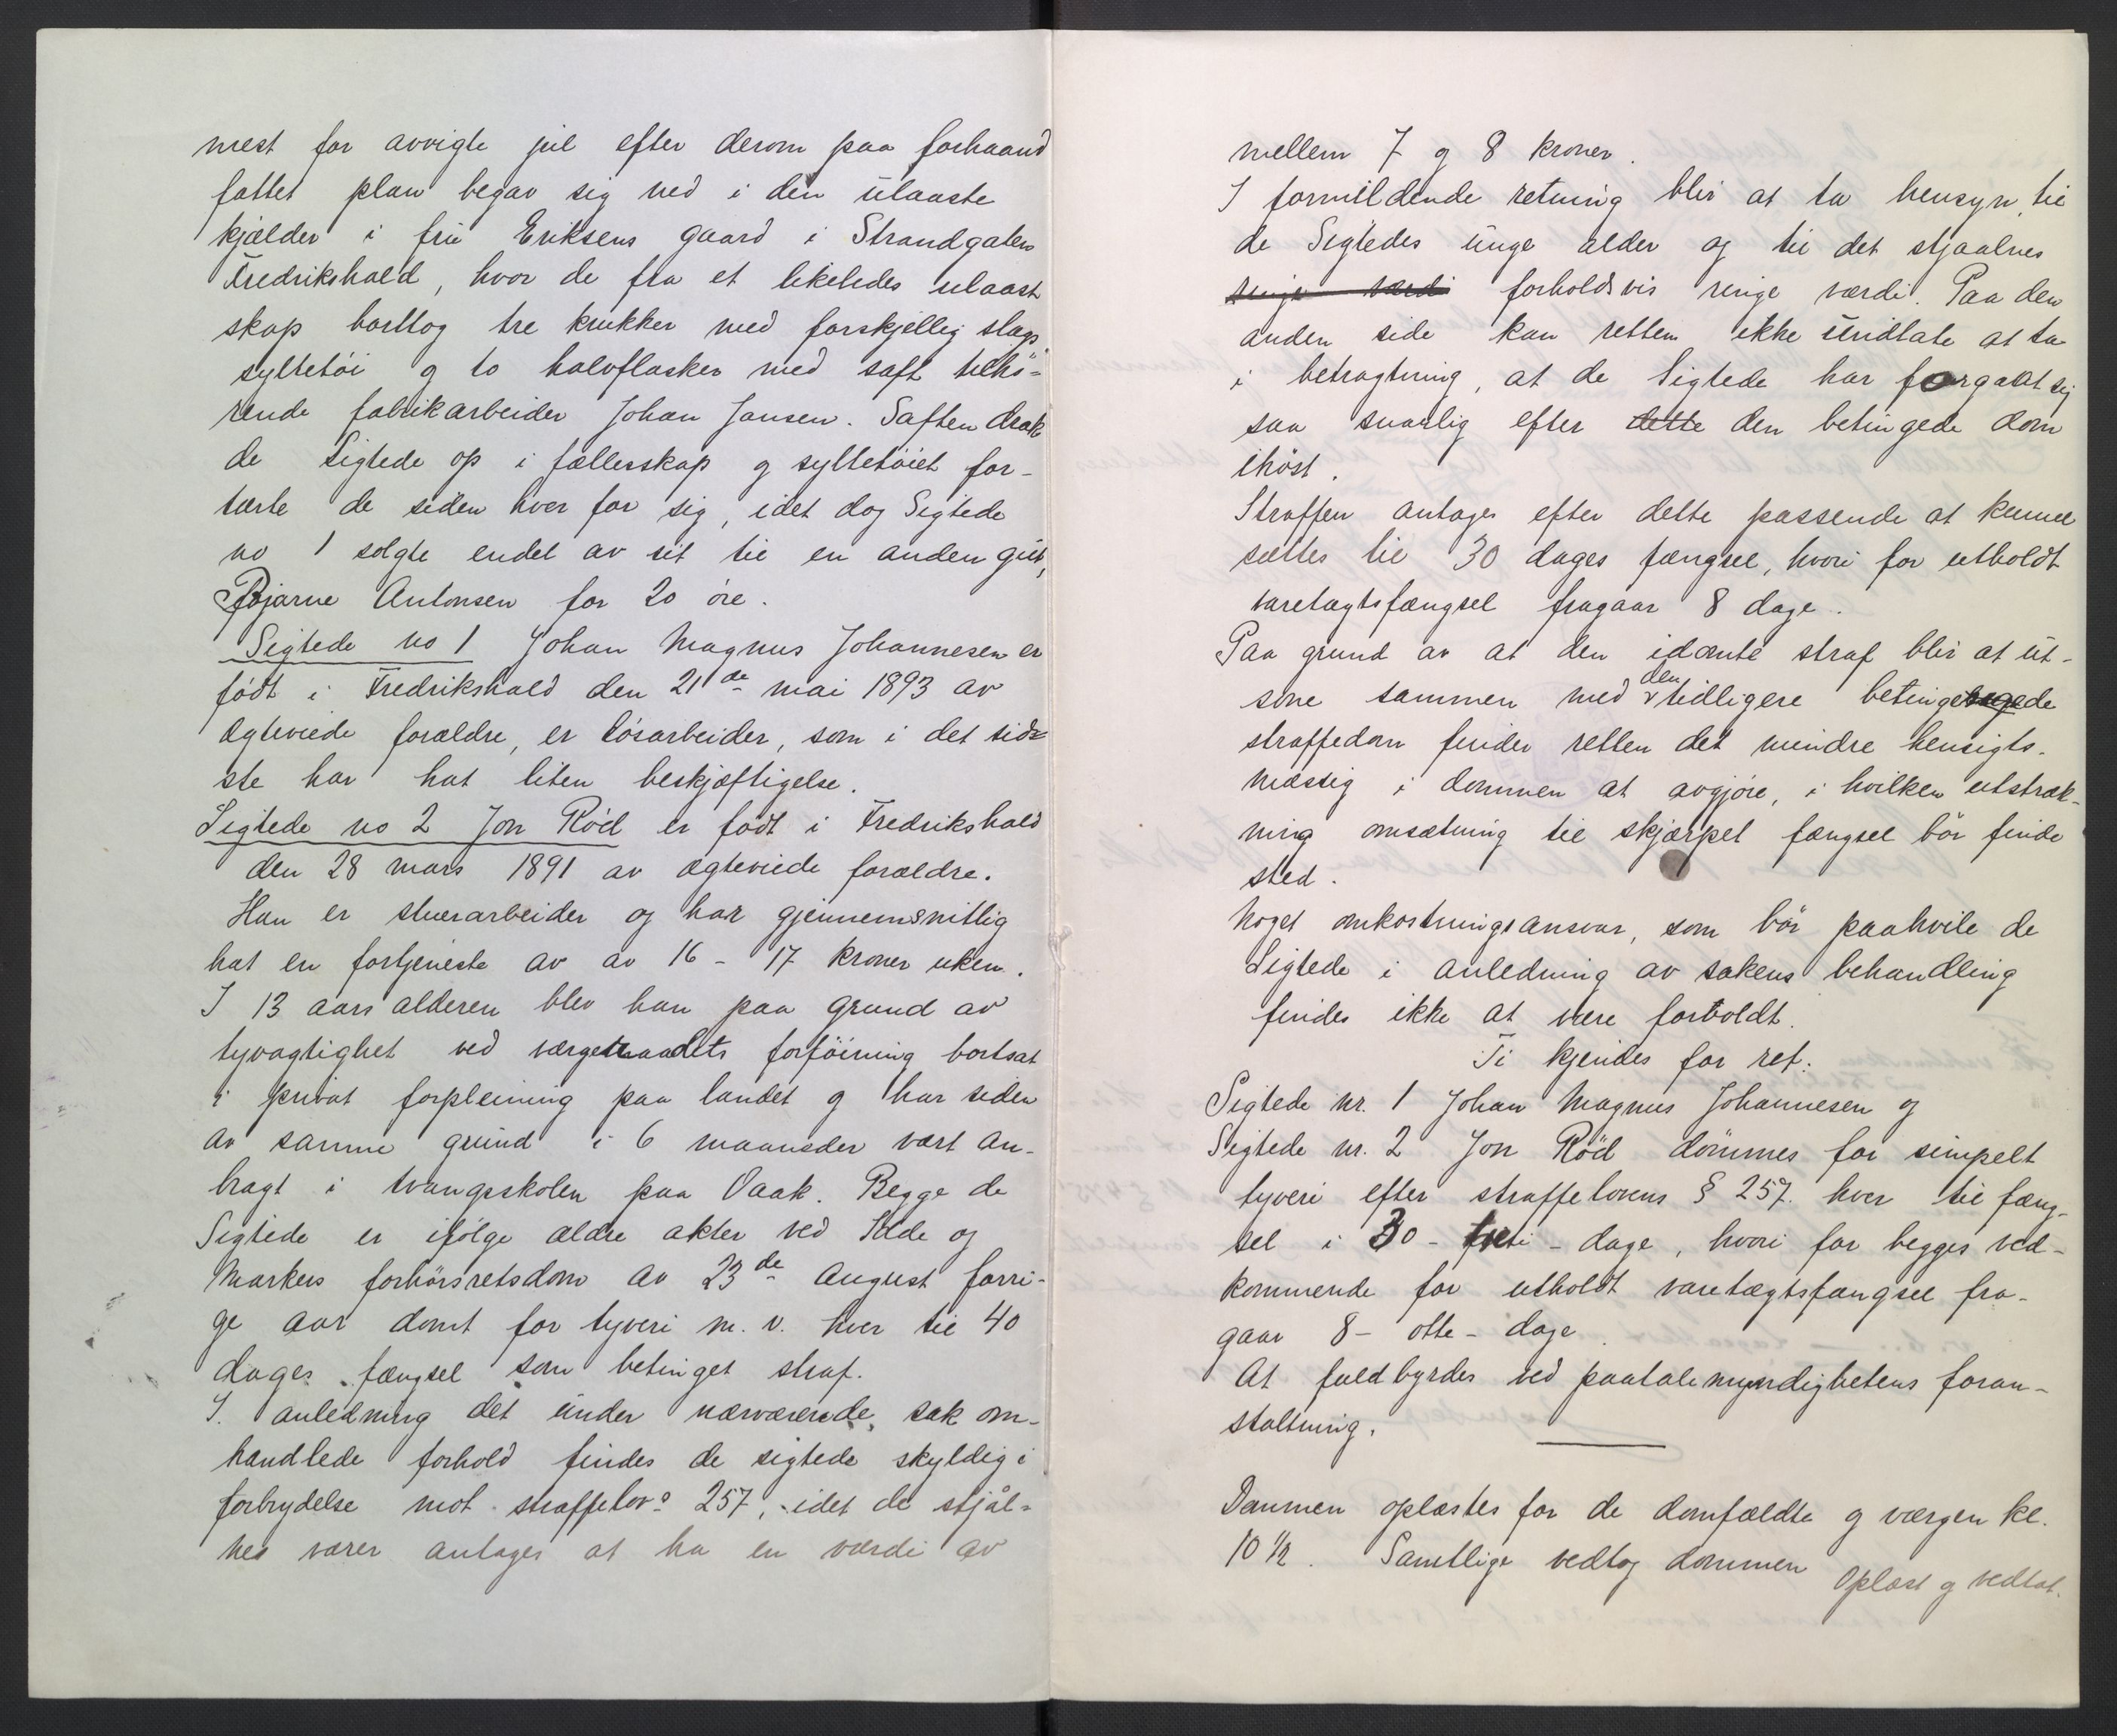 mest for avvigte jul efter derom paa forhaand
fattet plan begav sig ned i den ulaaste
kjælder i fru Eriksens gaard i Strandgaten
Fredrikshald, hvor de fra et likeledes ulaast
skap borttog tre krukker med forskjellig slags
syltetöi og to halvflasker med saft tilhö-
rende fabrikarbeider Johan Jansen. Saften drak
de Sigtede op i fællesskap og syltetöiet for-
tærte de siden hver for sig, idet dog Sigtede
no 1 solgte endel av sit til en anden gut,
Bjarne Antonsen for 20 öre.
Sigtede no 1 Johan Magnus Johannesen er
födt i Fredrikshald den 21de mai 1893 av
ægteviede forældre, er lösarbeider, som i det sids-
ste har hat liten beskjæftigelse.
Sigtede no 2 Jon Röd er födt i Fredrikshald
den 28 mars 1891 av ægteviede forældre.
Han er stuerarbeider og har gjennemsnitlig
hat en fortjeneste av av 16 - 17 kroner uken.
I 13 aars alderen blev han paa grund av
tyvagtighet ved værgeraadets forföining bortsat
i privat forpleining paa landet og har siden
av samme grund i 6 maaneder vært an-
bragt i tvangsskolen paa Vaak. Begge de
Sigtede er ifölge ældre akter ved Idde og
Markers forhörsretsdom av 23de August forri-
ge aar dömt for tyveri m. v. hver til 40
dages fængsel som betinget straf.
I anledning det under nærværende sak om-
handlede forhold findes de sigtede skyldig i
forbrydelse mot straffelovs 257, idet de stjål-
nes varer antages at ha en værdi av
mellem 7 og 8 kroner.
I formildende retning blir at ta hensyn til
de Sigtedes unge alder og til det stjaalnes
ringe værdi forholdsvis ringe værdi. Paa den
anden side kan retten ikke undlate at ta
i betragtning, at de Sigtede har forgaat sig
saa snarlig efter dette den betingede dom
ihöst.
Straffen antages efter dette passende at kunne
sættes til 30 dages fængsel, hvori for utholdt
varetægtsfængsel fragaar 8 dage.
Paa grund av at den idömte straf blir at ut-
sone sammen med den tidligere betingede
straffedom finder retten det mindre hensigts-
mæssig i dommen at avgjöre, i hvilken utstræk-
ning omsætning til skjærpet fængsel bör finde
sted.
Noget omkostningsansvar, som bör paahvile de
Sigtede i anledning av sakens behandling
findes ikke at være forvoldt.
Ti kjendes for ret:
Sigtede nr. 1 Johan Magnus Johannesen og
Sigtede nr. 2 Jon Röd dömmes for simpelt
tyveri efter straffelovens § 257. hver til fæng-
sel i 30 - treti - dage, hvori for begges ved-
kommende for utholdt varetægtsfængsel fra-
gaar 8 - otte - dage.
At fuldbyrdes ved paatalemyndighetens foran-
staltning.
Dommen oplæstes for de domfældte og værgen kl.
10 1/2. Samtlige vedtog dommen Oplæst og vedtat.